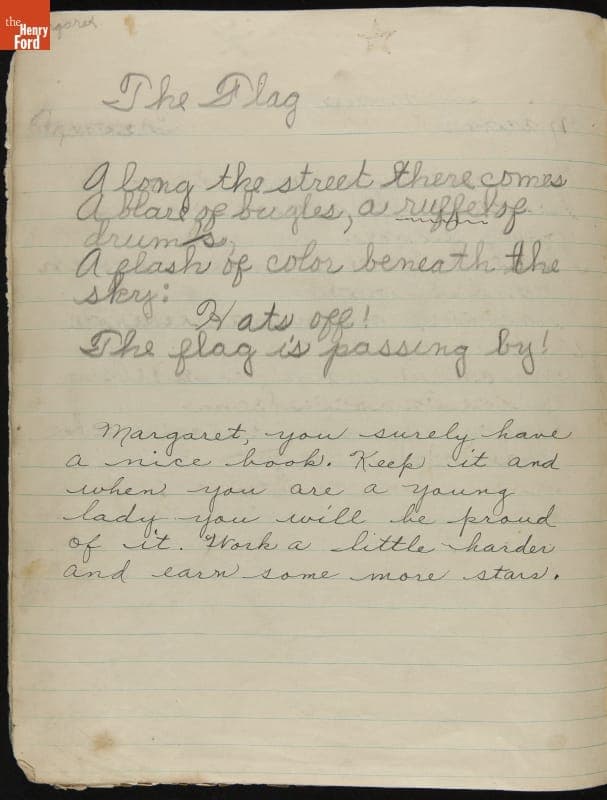 the
Henry
Ford
The Flag
Along the street there comes
A blare of bugles, a ruffel of
drums,
A flash of color beneath the
sky:
Hats off!
The flag is passing by!
Margaret, you surely have
a nice book. Keep it and
when you are a young
lady you will be proud
of it. Work a little harder
and earn some more stars.